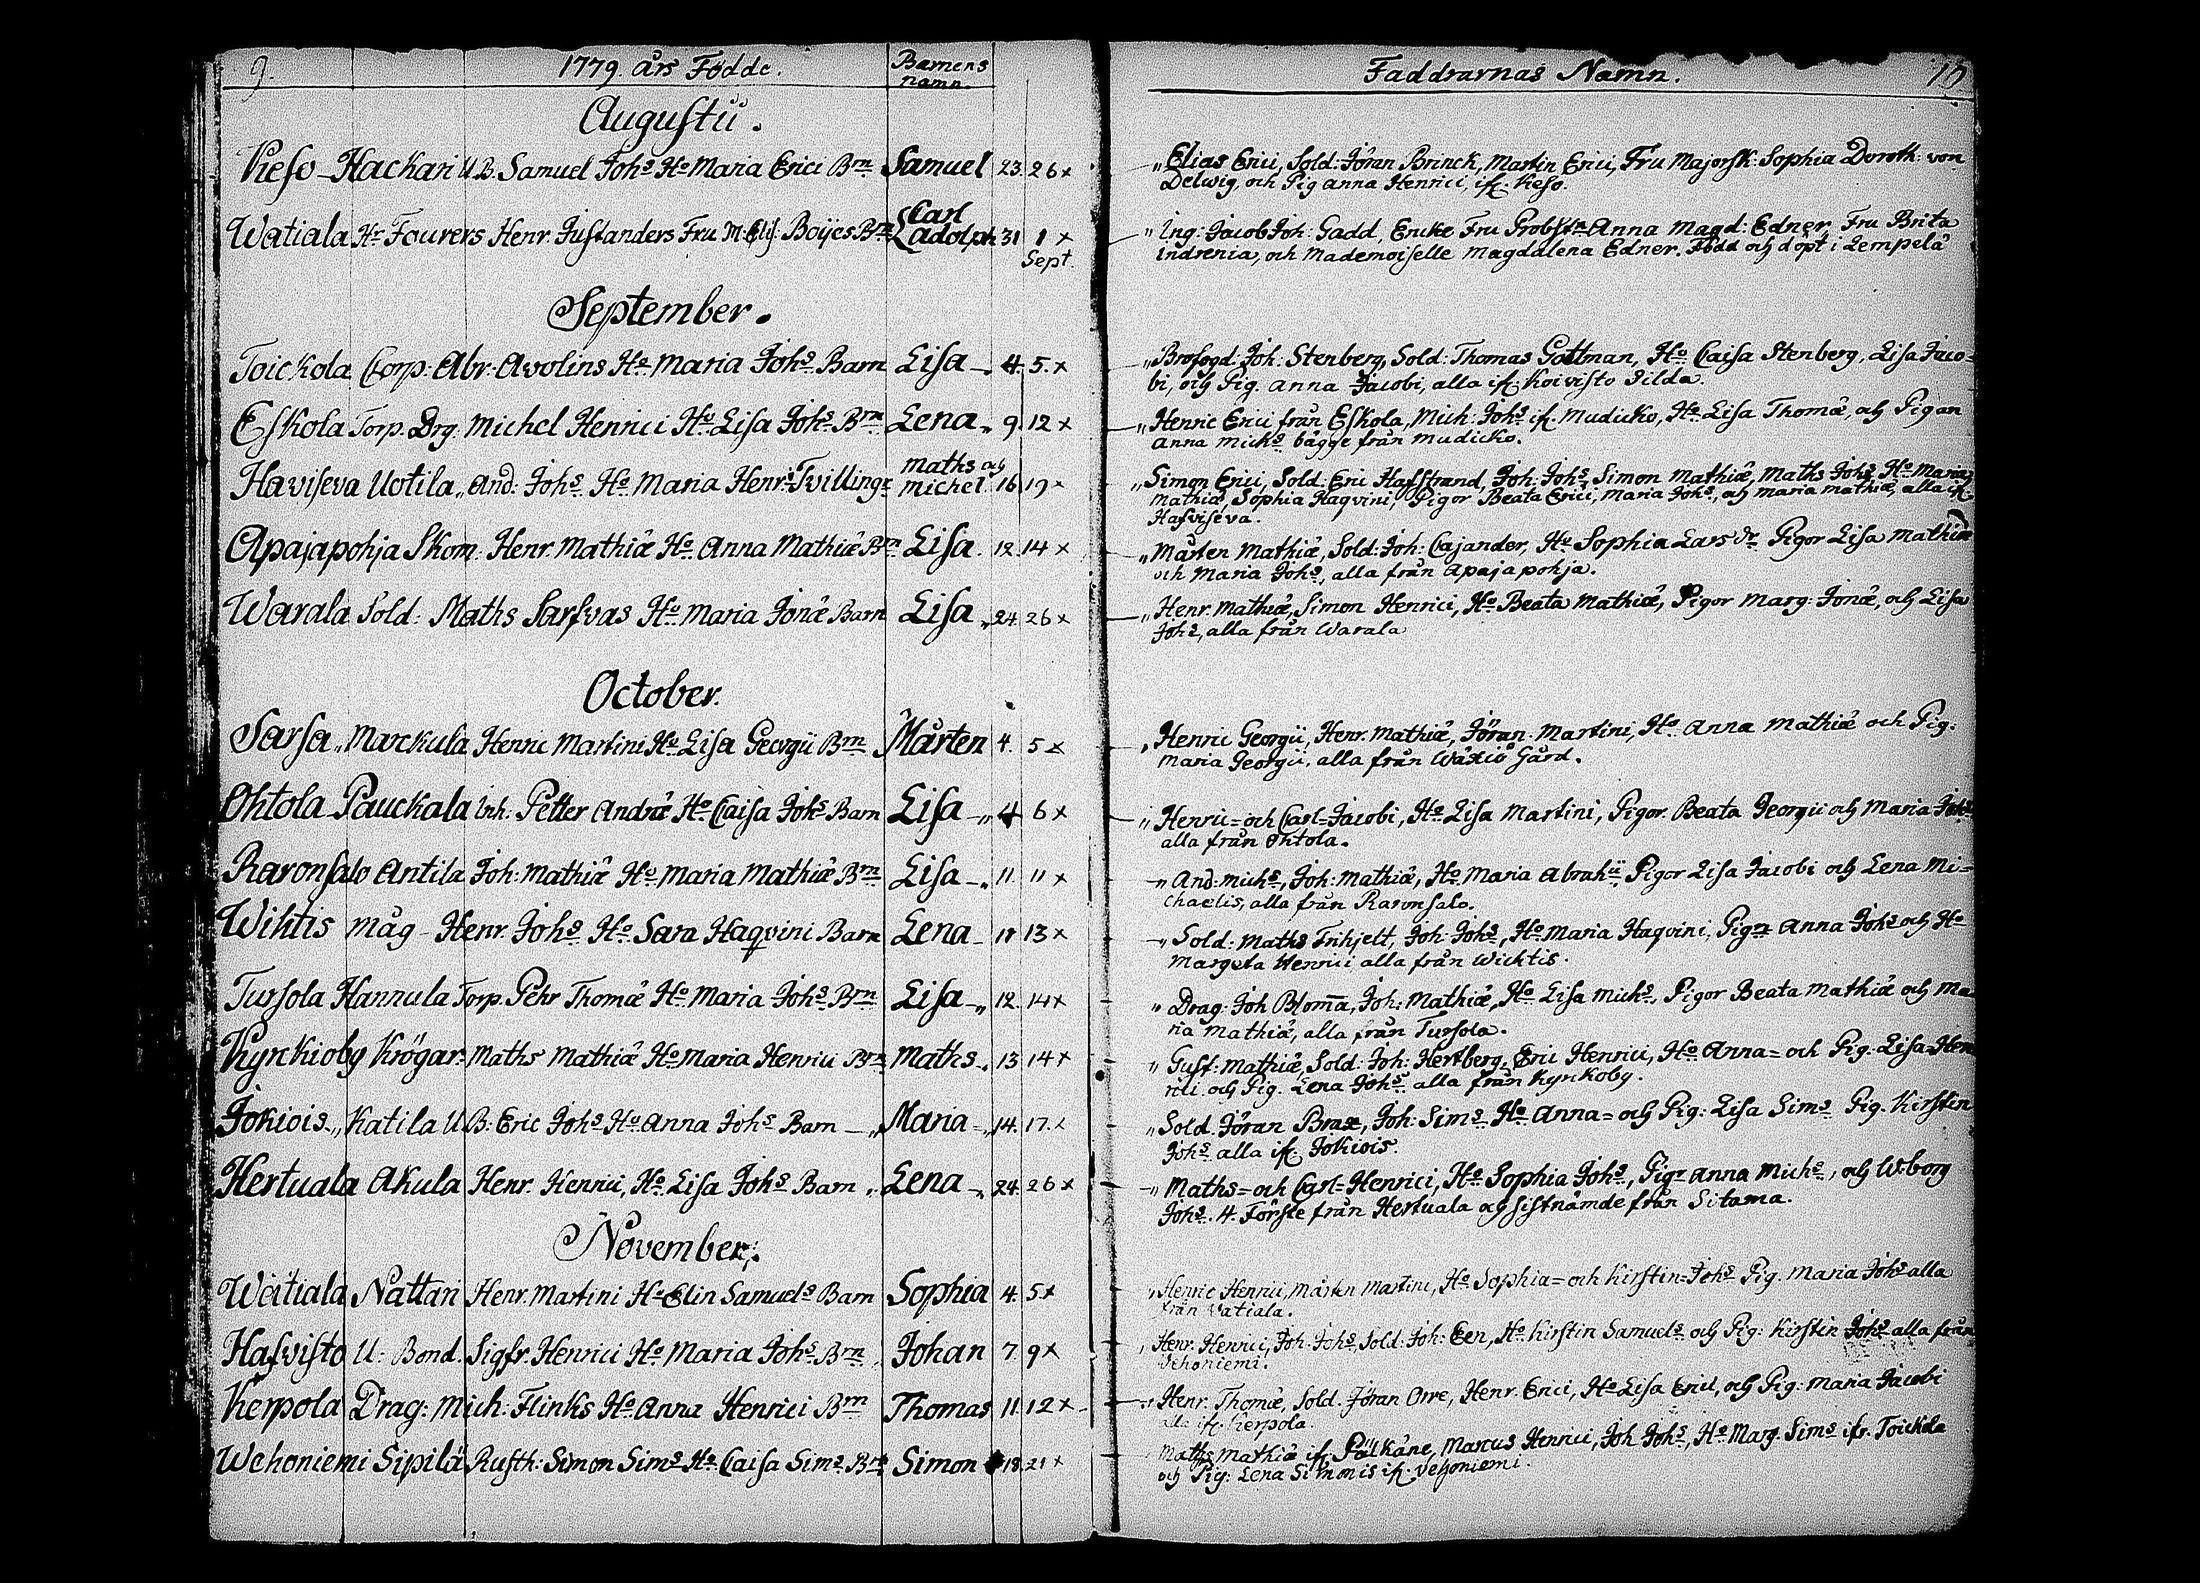 9.
1779. års Födde.
Barnens
namn.
Augustii.
Keso Hackari U.B. Samuel Johs Ho Maria Erici Brn Samuel 23. 26 x
Watiala Hr Fourers Henr. Justanders Fru M: Elis: Boijes Brn Carl
Adolph 31 1 x
Sept.
September.
Toickola Corp: Abr: Avolins Ho Maria Johs Barn Lisa 4. 5. x
Eskola Torp. Drg: Michel Henrici Ho Lisa Johs Brn Lena 9. 12 x
Haviseva Uotila And: Johs Ho Maria Henrs Tvillingr Maths och
Michel 16 19 x
Apajapohja Skom. Henr Mathiæ Ho Anna Mathiæ Brn Lisa 12. 14 x
Warala Sold: Maths Sarfvas Ho Maria Jonæ Barn Lisa 24. 26 x
October.
Sarsa Marckula Henric Martini Ho Lisa Georgii Brn Mårten 4. 5 x
Ohtola Pauckala Inh: Petter Andræ Ho Caisa Johs Barn Lisa 4 6 x
Raronsalo Antila Joh: Mathiæ Ho Maria Mathiæ Brn Lisa 11 11 x
Wihtis Måg Henr. Johs Ho Sara Haqvini Barn Lena 11 13 x
Tursola Hannula Torp. Pehr Thomæ Ho Maria Johs Brn Lisa 12 14 x
Kyrckioby Krögar: Maths Mathiæ Ho Maria Henrici Brn Maths 13 14 x
Jokiois Katila U.B: Eric Johs Ho Anna Johs Barn Maria 14. 17. x
Hertuala Akula Henr. Henrici, Ho Lisa Johs Barn Lena 24. 26 x
November.
Watiala Nattari Henr. Martini Ho Elin Samuels Barn Sophia 4. 5 x
Hafvisto U: Bond. Sigfr. Henrici Ho Maria Johs Brn Johan 7. 9 x
Kerpola Drag: Mich: Flinks Ho Anna Henrici Brn Thomas 11. 12 x
Wehoniemi Sipilä Rusth: Simon Sims Ho Caisa Sims Brn Simon 18. 21 x
Faddrarnas Namn.
10
Elias Erici, Sold: Jöran Brinck, Martin Erici, Fru Majorsk: Sophia Doroth: von
Delwig, och Pig Anna Henrici, ifr. Keso.
Ing: Jacob Joh: Gadd, Encke Fru Probstn Anna Magd: Edner, Fru Brita
Indrenia, och Mademoiselle Magdalena Edner. Född och döpt i Lempelä
Brofogd. Joh: Stenberg, Sold: Thomas Gottman, Ho Caisa Stenberg, Lisa Jaco=
bi, och Pig. Anna Jacobi, alla ifr. Koivisto
Henric Erici från Eskola, Mich: Johs ifr. Mudicko, Ho Lisa Thomæ, och Pigan
Anna Michs bägge från Mudicko.
Simon Erici, Sold: Eric Hafstrand, Joh: Johs Simon Mathiæ, Maths Johs Ho Maria
Mathiæ, Sophia Haqvini, Pigor Beata Erici, Maria Johs, och Maria Mathiæ, alla ifr
Hafviseva.
Mårten Mathiæ, Sold: Joh: Cajander, Ho Sophia Lars dr Pigor Lisa Mathiæ
och Maria Johs, alla från Apajapohja.
Henr. Mathiæ, Simon Henrici, Ho Beata Mathiæ, Pigor Marg: Jonæ, och Lisa
Johs, alla från Warala
Henric Georgii, Henr. Mathiæ, Jöran Martini, Ho Anna Mathiæ och Pig:
Maria Georgii, alla från Gård.
Henric= och Carl= Jacobi, Ho Lisa Martini, Pigor Beata Georgii och Maria Johs
alla från Ohtola.
And: Michs, Joh: Mathiæ, Ho Maria Pigor Lisa Jacobi och Lena Mi=
chaelis, alla från Raronsalo.
Sold: Maths Frihjelt, Joh: Johs, Ho Maria Haqvini, Pigr Anna Johs och Ho
Margeta Henrici alla från Wicktis.
Drag: Joh Blomm, Joh: Mathiæ, Ho Lisa Michs, Pigor Beata Mathiæ och Ma
ria Mathiæ, alla från Tursola.
Gust: Mathiæ, Sold: Joh: Hertberg, Eric Henrici, Ho Anna= och Pig: Lisa Hen
rici och Pig. Lena Johs alla från Kyrkoby.
Sold Jöran Brase, Joh: Sims Ho Anna= och Pig: Lisa Sims Pig. Kirstin
Johs alla ifr. Jokiois.
Maths= och Carl= Henrici, Ho Sophia Johs, Pigr Anna Michs, och Wiborg
Johs. 4. Förste från Hertuala och sistnämde från Sitama.
Henric Henrici, Mårten Martini, Ho Sophia= och Kirstin= Johs Pig. Maria Johs alla
från Vatiala.
Henr. Henrici, Joh: Johs, Sold: Joh: Een, Ho Kirstin Samuels och Pig: Kirstin Johs alla från
Vehoniemi.
Henr. Thomæ, Sold. Jöran Orre, Henr. Erici, Ho Lisa Erici, och Pig: Maria Jacobi
alla ifr. Kerpola
Maths Mathiæ ifr. Pälkäne, Marcus Henrici, Joh Johs, Ho Marg. Sims ifr. Toickola
och Pig: Lena Simonis ifr. Vehoniemi.